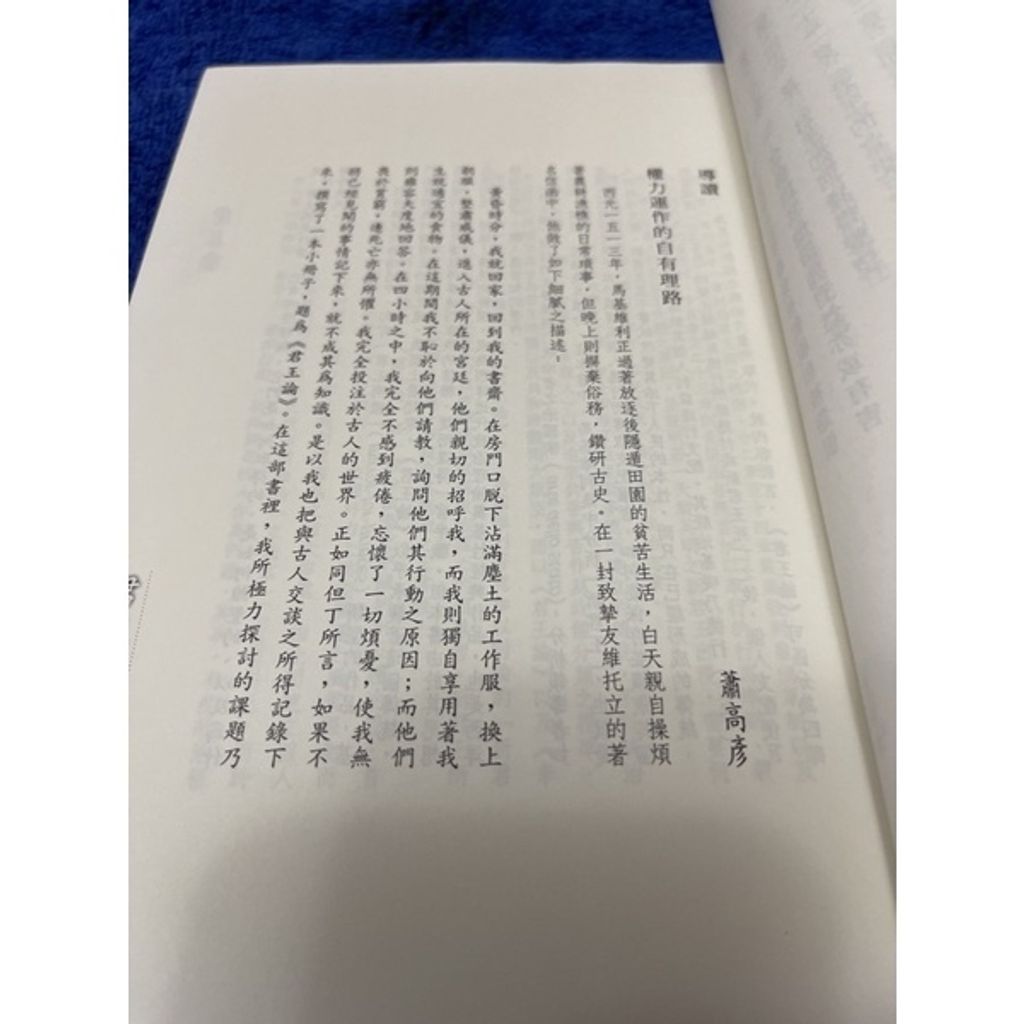 導讀
權力運作的自有理路
蕭高彥
西元一五一三年，馬基維利正過著放逐後隱遁田園的貧苦生活，白天親自操煩
著農耕漁樵的日常瑣事，但晚上則摒棄俗務，鑽研古史。在一封致摯友維托立的著
名信函中，他做了如下細膩之描述：
黃昏時分，我就回家，回到我的書齋。在房門口脫下沾滿塵土的工作服，換上
朝服，整肅威儀，進入古人所在的宮廷，他們親切的招呼我，而我則獨自享用著我
生就適宜的食物。在這期間我不恥於向他們請教，詢問他們其行動之原因；而他們
則雍容大度地回答。在四小時之中，我完全不感到疲倦，忘懷了一切煩憂，使我無
畏於貧窮，連死亡亦無所懼。我完全投注於古人的世界。正如同但丁所言，如果不
將已經見聞的事情記下來，就不成其為知識。是以我也把與古人交談之所得記錄下
來，撰寫了一本小冊子，題為《君王論》。在這部書裡，我所極力探討的課題乃